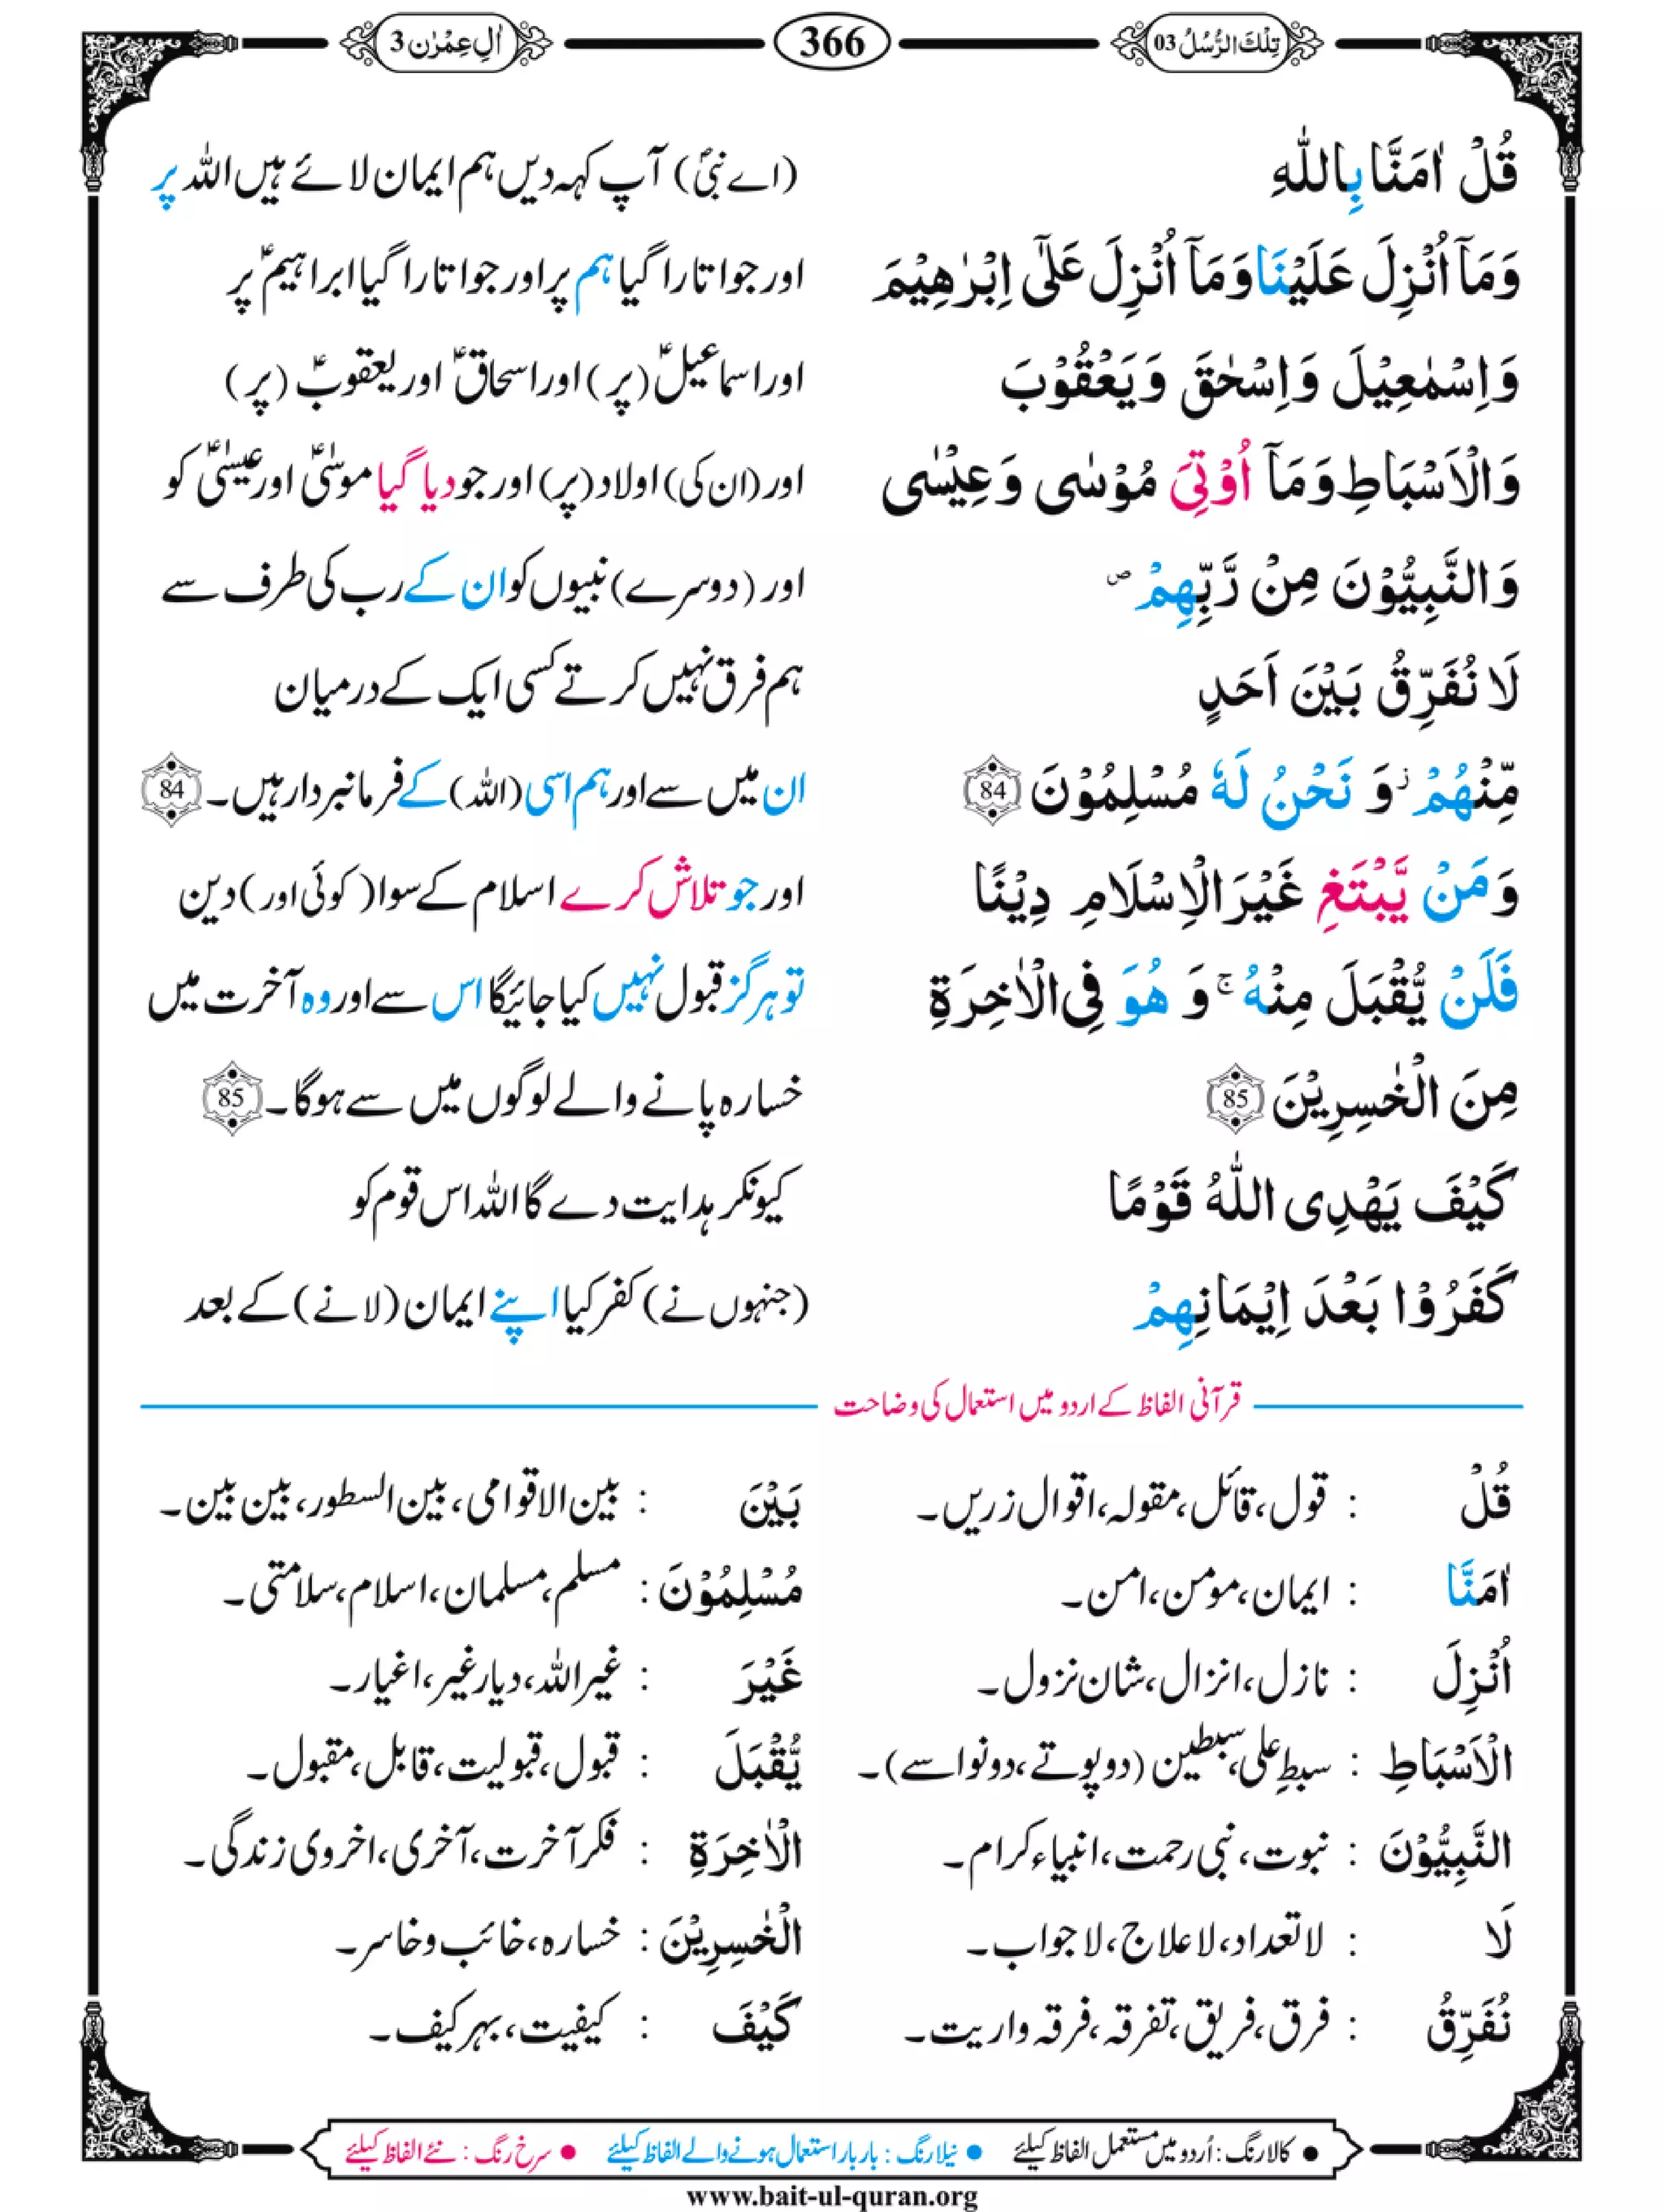 تِلْكَ الرُّسُلُ 03
366
اٰلِ عِمْرٰن 3
قُلْ اٰمَنَّا بِاللّٰهِ
(اے نبیؐ) آپ کہہ دیں ہم ایمان لائے ہیں اللہ پر
وَمَآ اُنْزِلَ عَلَيْنَا وَمَآ اُنْزِلَ عَلٰٓى اِبْرٰهِيْمَ
اور جو اتارا گیا ہم پر اور جو اتارا گیا ابراہیمؑ پر
وَاِسْمٰعِيْلَ وَاِسْحٰقَ وَيَعْقُوْبَ
اور اسماعیلؑ (پر) اور اسحاقؑ اور یعقوبؑ (پر)
وَالْاَسْبَاطِ وَمَآ اُوْتِيَ مُوْسٰى وَعِيْسٰى
اور (ان کی) اولاد (پر) اور جو دیا گیا موسیٰؑ اور عیسیٰؑ کو
وَالنَّبِيُّوْنَ مِنْ رَّبِّهِمْ ۖ
اور (دوسرے) نبیوں کو ان کے رب کی طرف سے
لَا نُفَرِّقُ بَيْنَ اَحَدٍ
ہم فرق نہیں کرتے کسی ایک کے درمیان
مِّنْهُمْ ۡ وَ نَحْنُ لَهٗ مُسْلِمُوْنَ 84
ان میں سے اور ہم اسی (اللہ) کے فرمانبردار ہیں۔ 84
وَمَنْ يَّبْتَغِ غَيْرَ الْاِسْلَامِ دِيْنًا
اور جو تلاش کرے اسلام کے سوا (کوئی اور) دین
فَلَنْ يُّقْبَلَ مِنْهُ ۚ وَ هُوَ فِى الْاٰخِرَةِ
تو ہرگز قبول نہیں کیا جائیگا اس سے اور وہ آخرت میں
مِنَ الْخٰسِرِيْنَ 85
خسارہ پانے والے لوگوں میں سے ہوگا۔ 85
كَيْفَ يَهْدِى اللّٰهُ قَوْمًا
کیونکر ہدایت دے گا اللہ اس قوم کو
كَفَرُوْا بَعْدَ اِيْمَانِهِمْ
(جنہوں نے) کفر کیا اپنے ایمان (لانے) کے بعد
قرآنی الفاظ کے اردو میں استعمال کی وضاحت
قُلْ : قول، قائل، مقولہ، اقوال زریں۔
اٰمَنَّا : ایمان، مومن، امن۔
اُنْزِلَ : نازل، انزال، شان نزول۔
الْاَسْبَاطِ : سبطِ علی، سبطین (دو پوتے، دو نواسے)۔
النَّبِيُّوْنَ : نبوت، نبی رحمت، انبیاء کرام۔
لَا : لا تعداد، لا علاج، لا جواب۔
نُفَرِّقُ : فرق، فریق، تفرقہ، فرقہ واریت۔
بَيْنَ : بین الاقوامی، بین السطور، بین بین۔
مُسْلِمُوْنَ : مسلم، مسلمان، اسلام، سلامتی۔
غَيْرَ : غیر اللہ، دیار غیر، اغیار۔
يُّقْبَلَ : قبول، قبولیت، قابل، مقبول۔
الْاٰخِرَةِ : فکر آخرت، آخری، اخروی زندگی۔
الْخٰسِرِيْنَ : خسارہ، خائب و خاسر۔
كَيْفَ : کیفیت، بہر کیف۔
• کالا رنگ : اُردو میں مستعمل الفاظ کیلئے • نیلا رنگ : بار بار استعمال ہونے والے الفاظ کیلئے • سرخ رنگ : نئے الفاظ کیلئے
www.bait-ul-quran.org